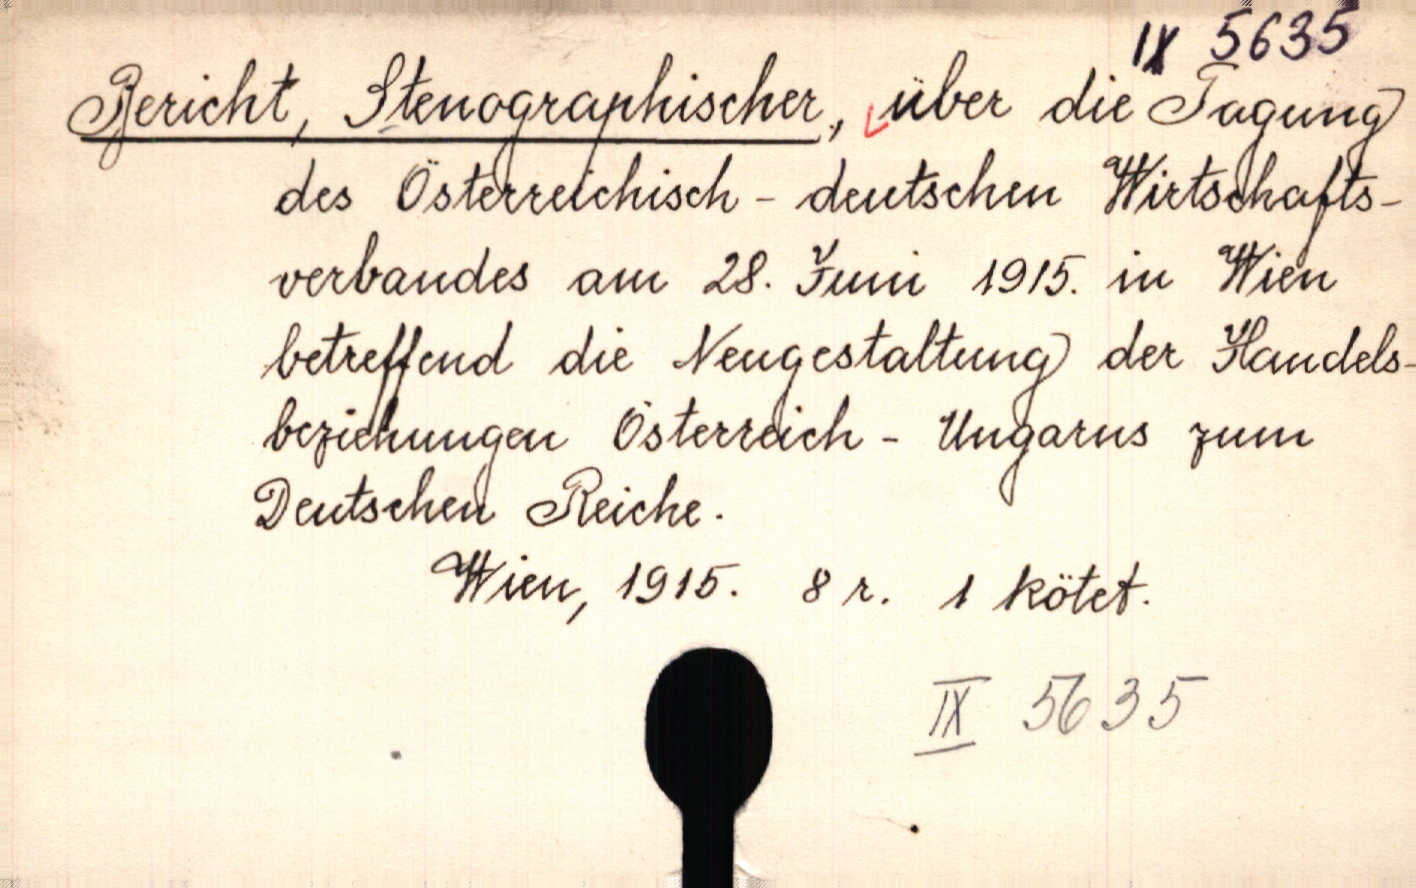 IX 5635
Bericht, Stenographischer, über die Tagung
des Österreichisch - deutschen Wirtschafts-
verbandes am 28. Juni 1915. in Wien
betreffend die Neugestaltung der Handels-
beziehungen Österreich - Ungarns zum
Deutschen Reiche.
Wien, 1915. 8 r. 1 kötet.
IX 5635